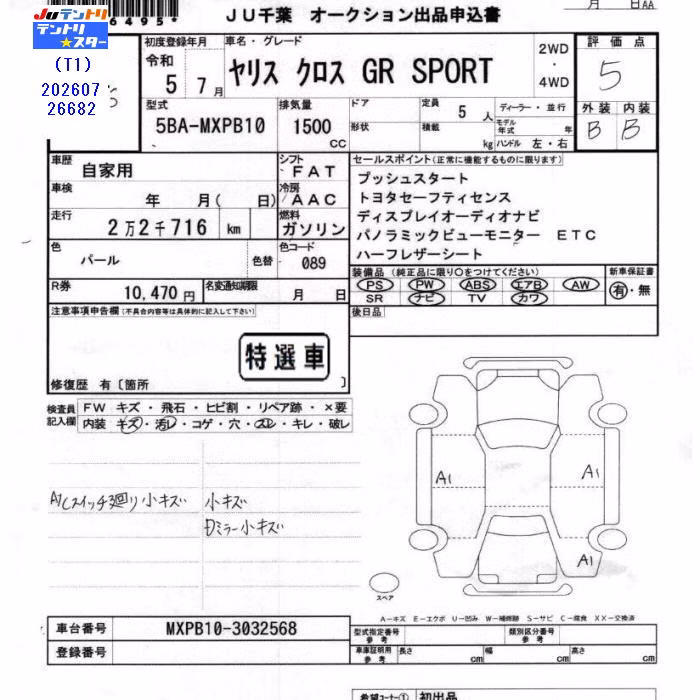 6495*
JU千葉 オークション出品申込書
月 日AA
Juテントリ
テントリ
スター
(T1)
202607
26682
初度登録年月
令和
5 7月
車名・グレード
ヤリス クロス GR SPORT
2WD
・
4WD
評価点
5
型式
5BA-MXPB10
排気量
1500
CC
ドア
形状
定員
5 人
積載
kg
ディーラー・並行
モデル年式 年
ハンドル 左・右
外装 内装
B B
車歴
自家用
シフト
FAT
車検
年 月( 日)
冷房
AAC
走行
2万2千716 km
燃料
ガソリン
色
パール
色替
色コード
089
R券
10,470 円
名変通知期限
月 日
セールスポイント(正常に機能するものに限ります)
プッシュスタート
トヨタセーフティセンス
ディスプレイオーディオナビ
パノラミックビューモニター ETC
ハーフレザーシート
装備品(純正品に限り○をつけてください)
新車保証書
PS PW ABS エアB AW
SR ナビ TV カワ
有・無
後日品
注意事項申告欄(不具合内容等は具体的に記入して下さい)
特選車
修復歴 有〔箇所 〕
検査員
記入欄
FW キズ・飛石・ヒビ割・リペア跡・×要
内装 キズ・汚レ・コゲ・穴・スレ・キレ・破レ
小キズ 小キズ
ロミラー小キズ
A1
A1
A1
スペア
A-キズ E-エクボ U-凹み W-補修跡 S-サビ C-腐食 XX-交換済
車台番号 MXPB10-3032568
登録番号
型式指定番号
参考
類別区分番号
参考
車庫証明用
参考
長さ cm 幅 cm 高さ cm
希望コーナー① 初出品